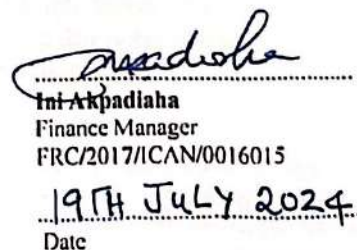 Ini Akpadiaha
Finance Manager
FRC/2017/ICAN/0016015
19TH JULY 2024
Date